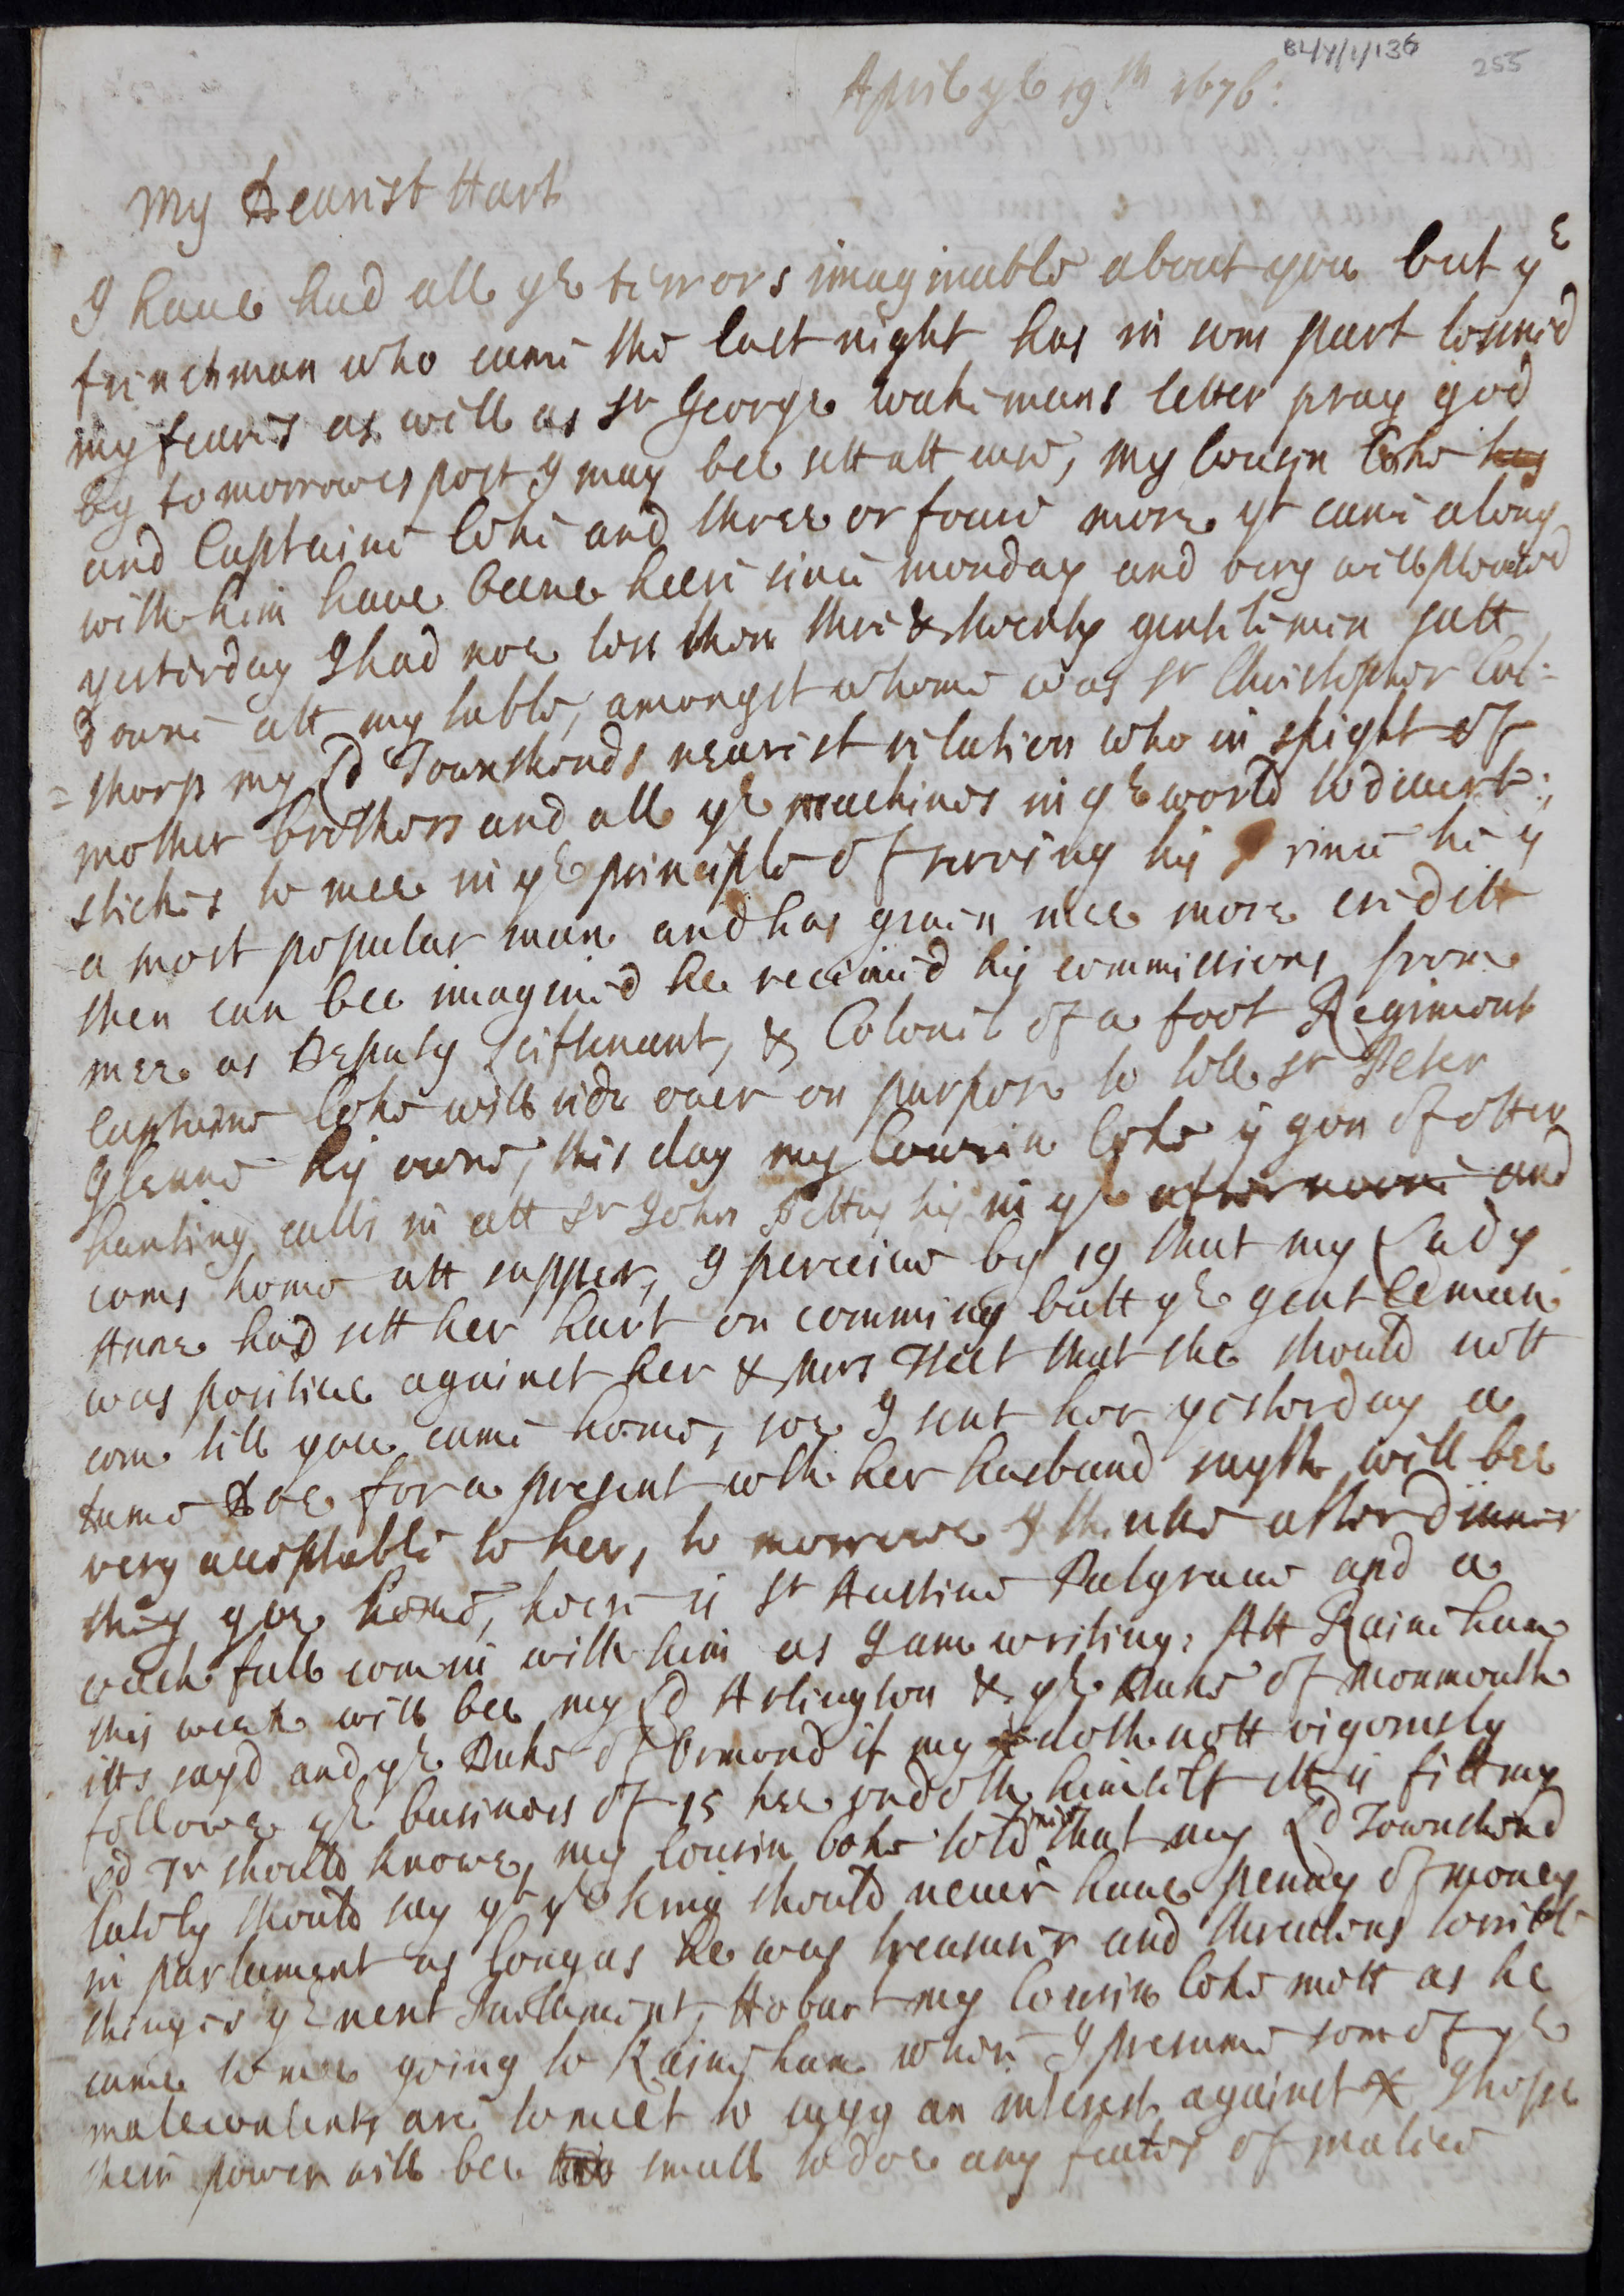 BL/Y/1/136
255
April ye 19th 1676:
My Dearist Hart
I haue had all ye terrors imaginable about you but ye
frinchman who came the last night has in som part losned
my feares as well as Sr George wakemans letter pray god
by to morrowes post I may bee sett att ease, my Cousin Coke has
and Captaine Coke and three or foure more yt came along
with him have beene heere since monday and very well pleased
yesterday I had noe less then thre & twenty gentlemen satt
downe att my table, amongst whome was Sr Christopher Cal=
=thorp my Ld Townshends nearist relation who in spight of
mother brothers and all ye machines in ye world to diuert:
stickes to mee in ye principle of serving his since he is
a most popular man and has giuen mee more creditt
then can bee imagined he receiued his commissions from
mee as Deputy Leiftenant, & Colonel of a foot Regiment
Captaine Coke will ride ouer on purpose to tell Sr Peter
Gleane his owne, this day my Cousin Coke is gon of otter
hunting calls in att Sr John Pettus his in ye afternoone and
coms home att supper, I perceiue by 19 that my Lady
Anne had sett her hart on comming butt ye gentleman
was positiue against her & Mrs that she should nott
com till you came home, soe I sent her yesterday a
tame Doe for a present wch her husband sayth will bee
very acceptable to her, to morrowe I thinke after dinner
they goe home, heere is Sr Austine Palgraue and a
coach full com in with him as I am writing, Att Rainham
this week will bee my Ld Arlington & ye Duke of Monmouth
itts sayd and ye Duke of Ormond if my doth nott vigorously
followe ye business of 15 hee undoth himself itt is fitt my
Ld Tr should knowe, my Cousin Coke told mee that my Ld Townshend
lately should say yt ye king should neuer haue penny of money
in parlament as long as he was treasurer and threatens terrible
things ye next Parlament, Hobart my Cousin Coke mett as he
came to mee going to Rainham where I presume som of ye
malecontents are to meet to an interest against X I hope
their power will bee small to doe any feates of malice